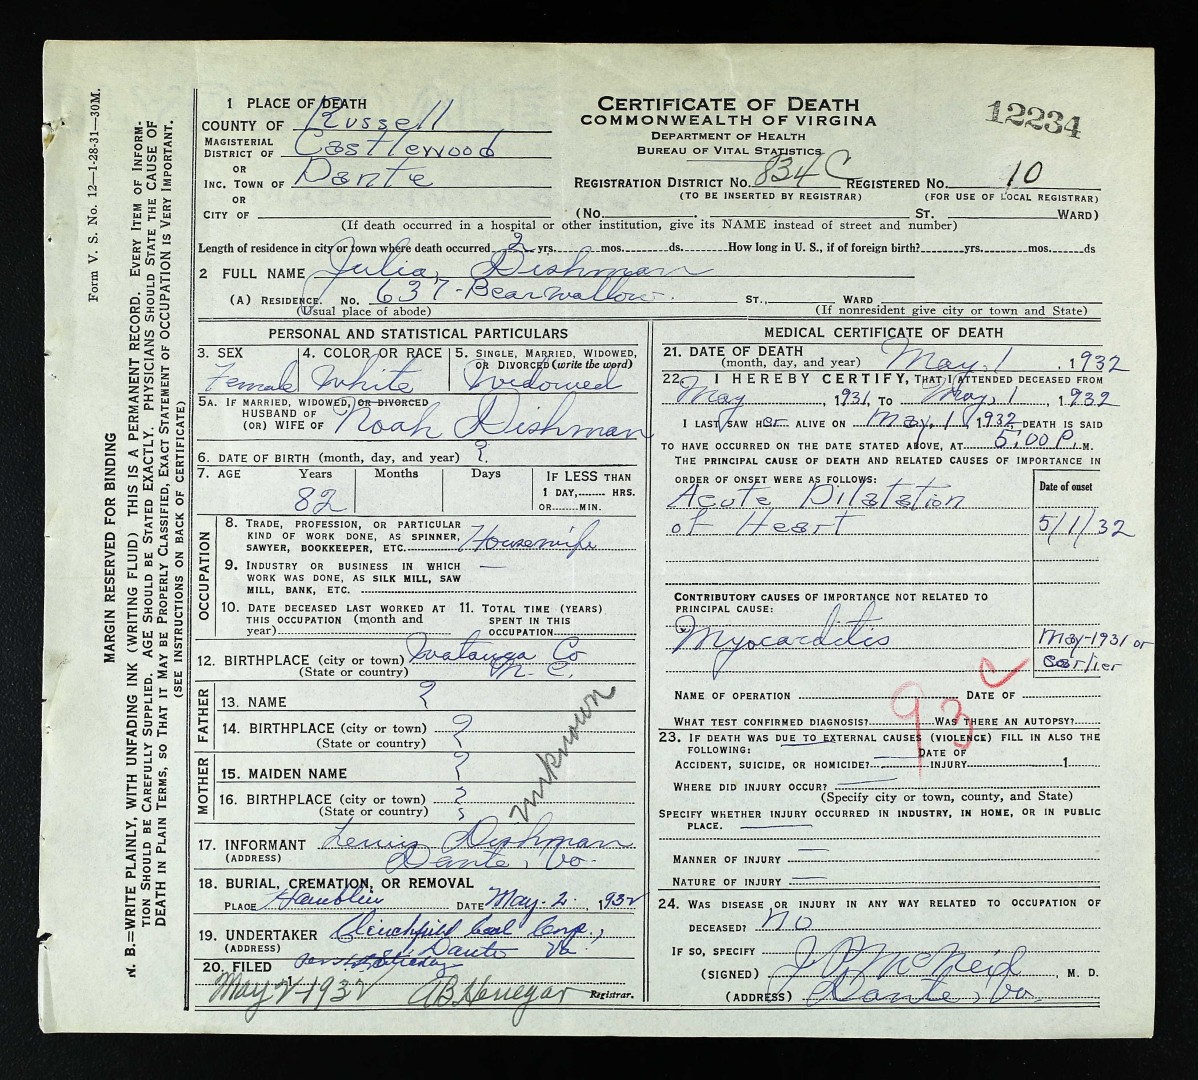 Form V. S. No. 12—1-28-31—30M.
MARGIN RESERVED FOR BINDING
N. B.=WRITE PLAINLY, WITH UNFADING INK (WRITING FLUID) THIS IS A PERMANENT RECORD. EVERY ITEM OF INFORM-
TION SHOULD BE CAREFULLY SUPPLIED. AGE SHOULD BE STATED EXACTLY. PHYSICIANS SHOULD STATE THE CAUSE OF
DEATH IN PLAIN TERMS, SO THAT IT MAY BE PROPERLY CLASSIFIED. EXACT STATEMENT OF OCCUPATION IS VERY IMPORTANT.
(SEE INSTRUCTIONS ON BACK OF CERTIFICATE)
1 PLACE OF DEATH
COUNTY OF Russell
MAGISTERIAL
DISTRICT OF Castlewood
OR
INC. TOWN OF Dante
OR
CITY OF
CERTIFICATE OF DEATH
COMMONWEALTH OF VIRGINIA
DEPARTMENT OF HEALTH
BUREAU OF VITAL STATISTICS
12234
REGISTRATION DISTRICT NO. 834C REGISTERED NO. 10
(TO BE INSERTED BY REGISTRAR) (FOR USE OF LOCAL REGISTRAR)
(NO. ST. WARD)
(If death occurred in a hospital or other institution, give its NAME instead of street and number)
Length of residence in city or town where death occurred 2 yrs. mos. ds. How long in U. S., if of foreign birth? yrs. mos. ds
2 FULL NAME Julia Dishman
(A) RESIDENCE. No. 637-Bearwallow. ST., WARD
(Usual place of abode) (If nonresident give city or town and State)
PERSONAL AND STATISTICAL PARTICULARS
3. SEX 4. COLOR OR RACE 5. SINGLE, MARRIED, WIDOWED,
OR DIVORCED (write the word)
Female White Widowed
5A. IF MARRIED, WIDOWED, OR DIVORCED
HUSBAND OF
(OR) WIFE OF Noah Dishman
6. DATE OF BIRTH (month, day, and year) ?
7. AGE Years Months Days IF LESS THAN
1 DAY, HRS.
OR MIN.
82
OCCUPATION
8. TRADE, PROFESSION, OR PARTICULAR
KIND OF WORK DONE, AS SPINNER,
SAWYER, BOOKKEEPER, ETC. Housewife
9. INDUSTRY OR BUSINESS IN WHICH
WORK WAS DONE, AS SILK MILL, SAW
MILL, BANK, ETC.
10. DATE DECEASED LAST WORKED AT
THIS OCCUPATION (month and
year)
11. TOTAL TIME (YEARS)
SPENT IN THIS
OCCUPATION
12. BIRTHPLACE (city or town) Watauga Co
(State or country) N. C.
FATHER
13. NAME ?
14. BIRTHPLACE (city or town) ?
(State or country) ?
MOTHER
15. MAIDEN NAME ?
16. BIRTHPLACE (city or town) ?
(State or country) ?
unknown
17. INFORMANT Lewis Dishman
(ADDRESS) Dante, Va.
18. BURIAL, CREMATION, OR REMOVAL
PLACE Hamblin DATE May-2. 1932
19. UNDERTAKER Clinchfield Coal Corp.,
(ADDRESS) Dante Va
20. FILED
May 2-1932 AB Henegar Registrar.
MEDICAL CERTIFICATE OF DEATH
21. DATE OF DEATH
(month, day, and year) May, 1, 1932
22. I HEREBY CERTIFY, THAT I ATTENDED DECEASED FROM
May, 1931, TO May, 1, 1932
I LAST SAW HER ALIVE ON May, 1, 1932 DEATH IS SAID
TO HAVE OCCURRED ON THE DATE STATED ABOVE, AT 5:00 P. M.
THE PRINCIPAL CAUSE OF DEATH AND RELATED CAUSES OF IMPORTANCE IN
ORDER OF ONSET WERE AS FOLLOWS: Date of onset
Acute Dilatation
of Heart 5/1/32
CONTRIBUTORY CAUSES OF IMPORTANCE NOT RELATED TO
PRINCIPAL CAUSE:
Myocarditis May-1931 or
earlier
93 c
NAME OF OPERATION DATE OF
WHAT TEST CONFIRMED DIAGNOSIS? WAS THERE AN AUTOPSY?
23. IF DEATH WAS DUE TO EXTERNAL CAUSES (VIOLENCE) FILL IN ALSO THE
FOLLOWING:
DATE OF
ACCIDENT, SUICIDE, OR HOMICIDE? INJURY 1
WHERE DID INJURY OCCUR?
(Specify city or town, county, and State)
SPECIFY WHETHER INJURY OCCURRED IN INDUSTRY, IN HOME, OR IN PUBLIC
PLACE.
MANNER OF INJURY
NATURE OF INJURY
24. WAS DISEASE OR INJURY IN ANY WAY RELATED TO OCCUPATION OF
DECEASED? No
IF SO, SPECIFY
(SIGNED) J P McNeil, M. D.
(ADDRESS) Dante, Va.